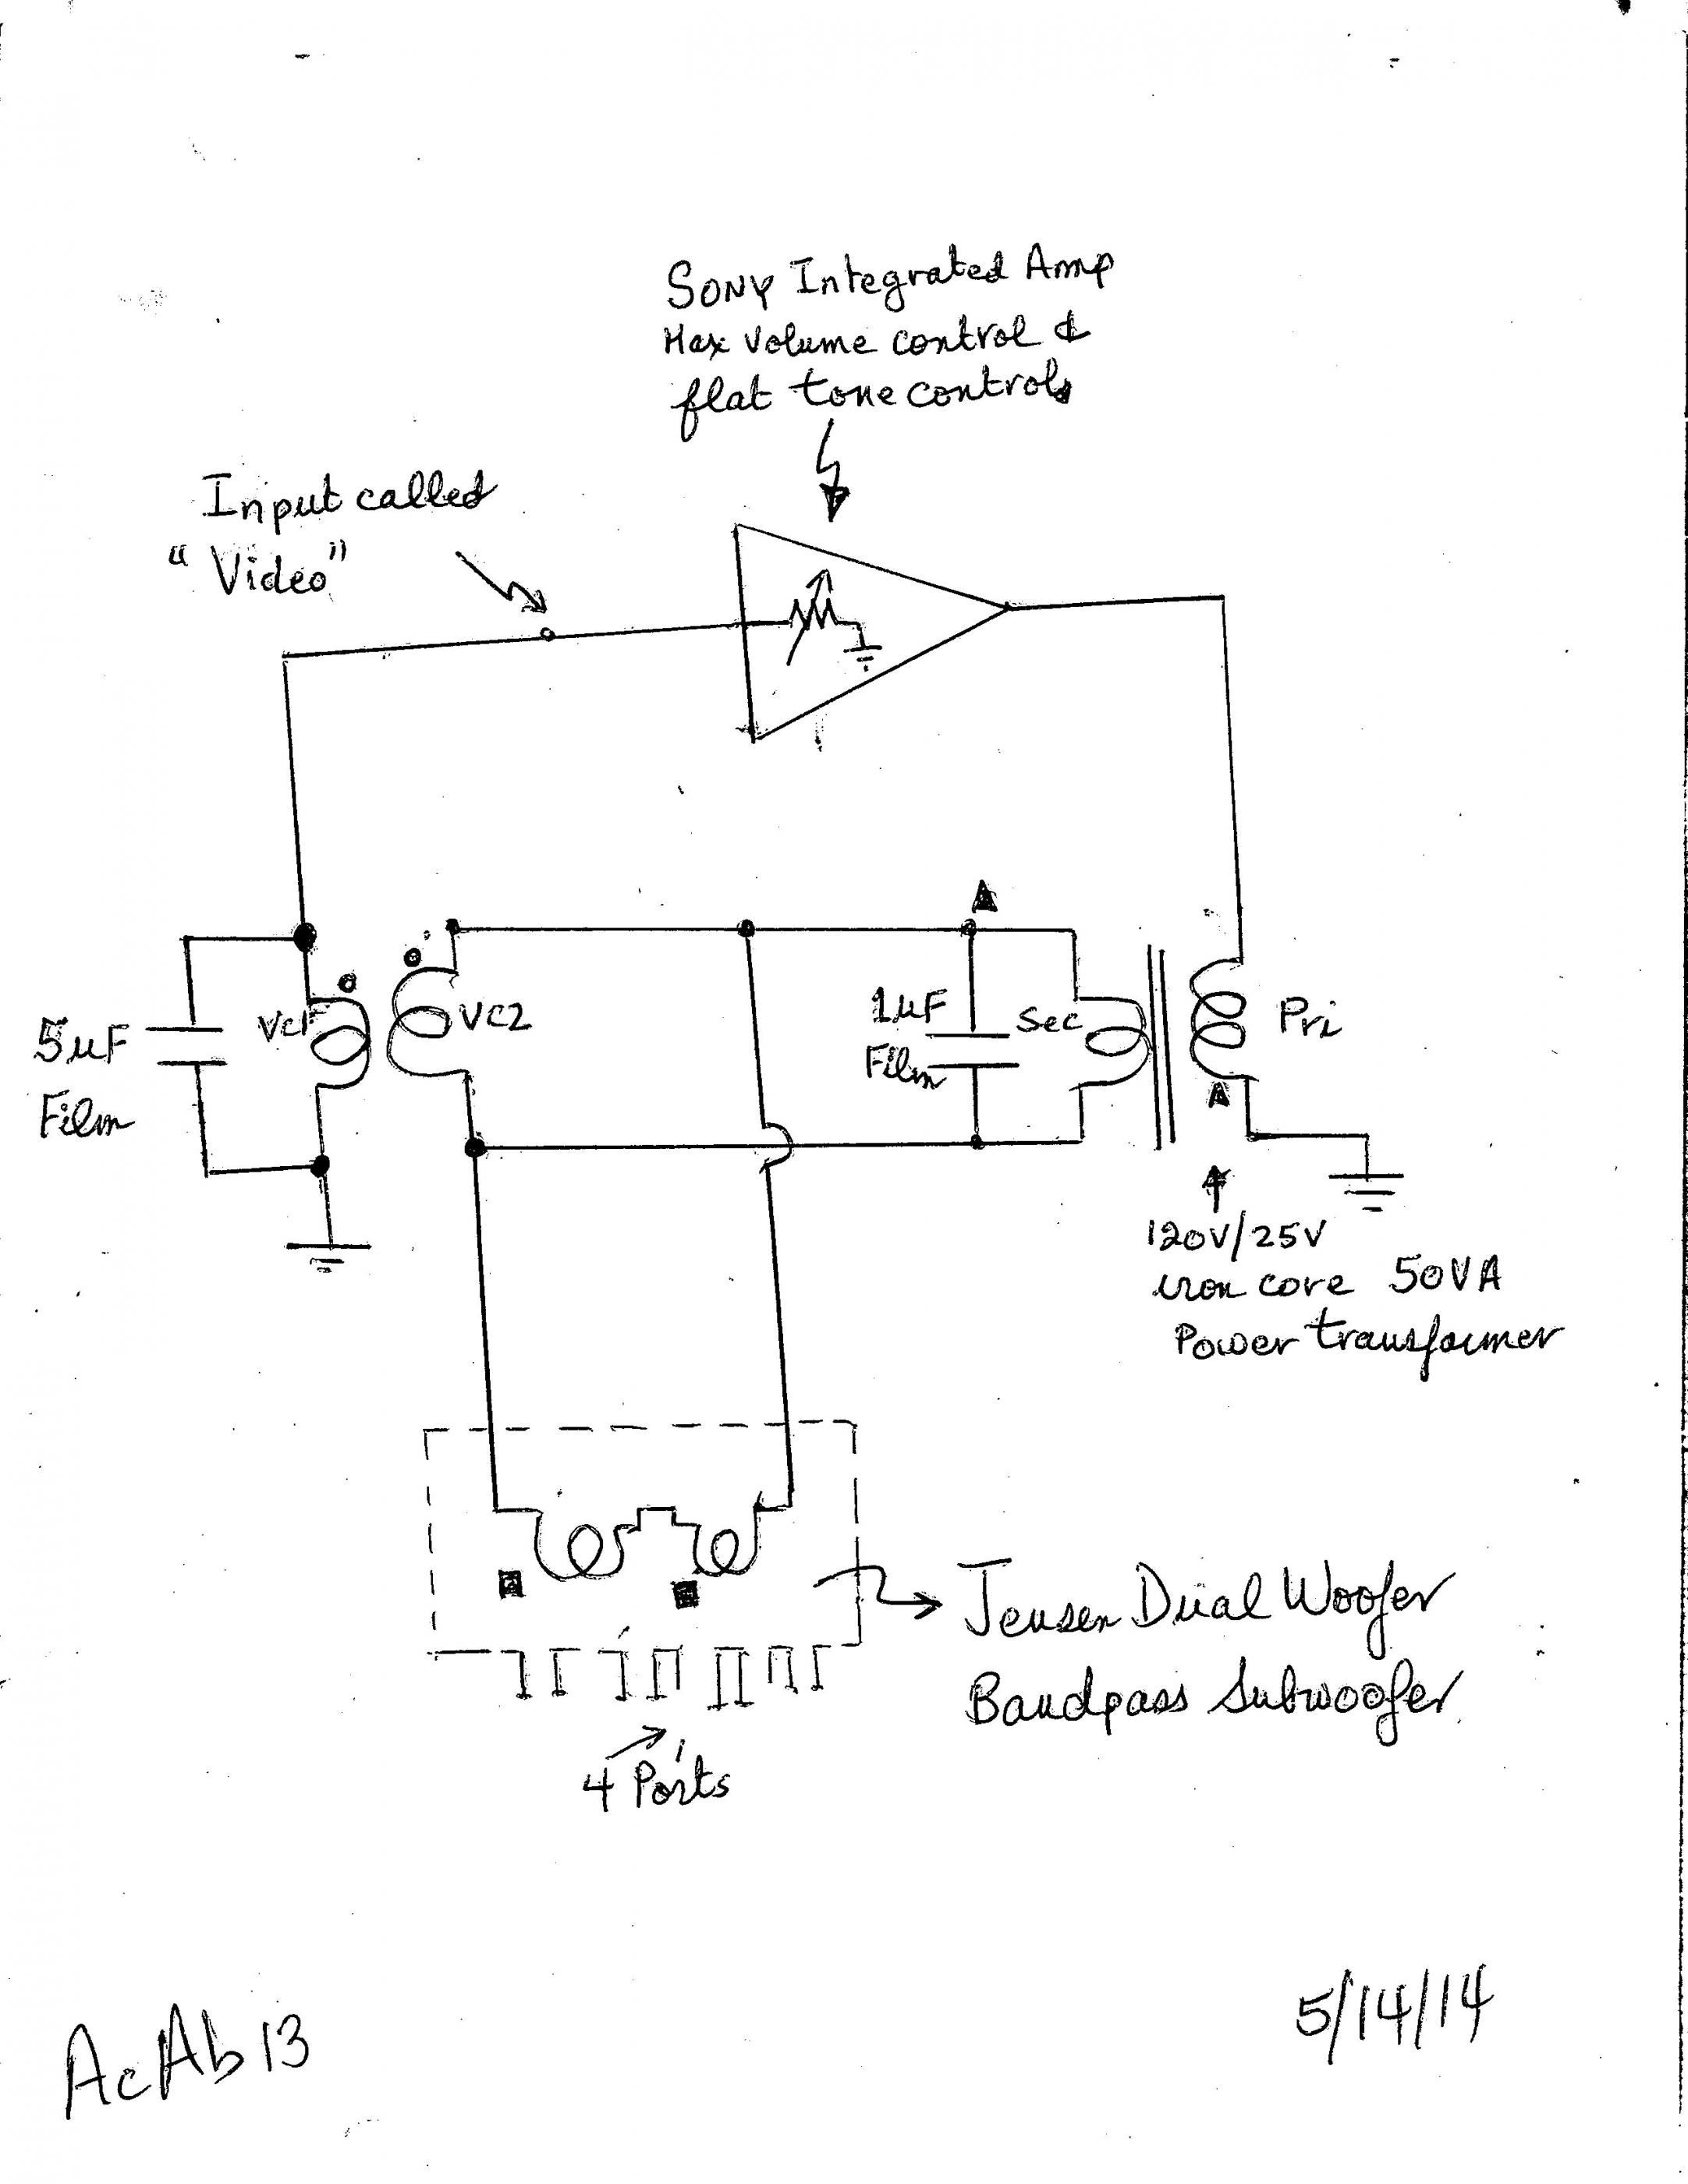 SONY Integrated Amp
Max Volume control &
flat tone controls
Input called
"Video"
5µF
Film
VC1
VC2
1µF
Film
Sec
Pri
120V/25V
iron core 50VA
Power transformer
Jensen Dual Woofer
Bandpass Subwoofer
4 Ports
AcAb13
5/14/14